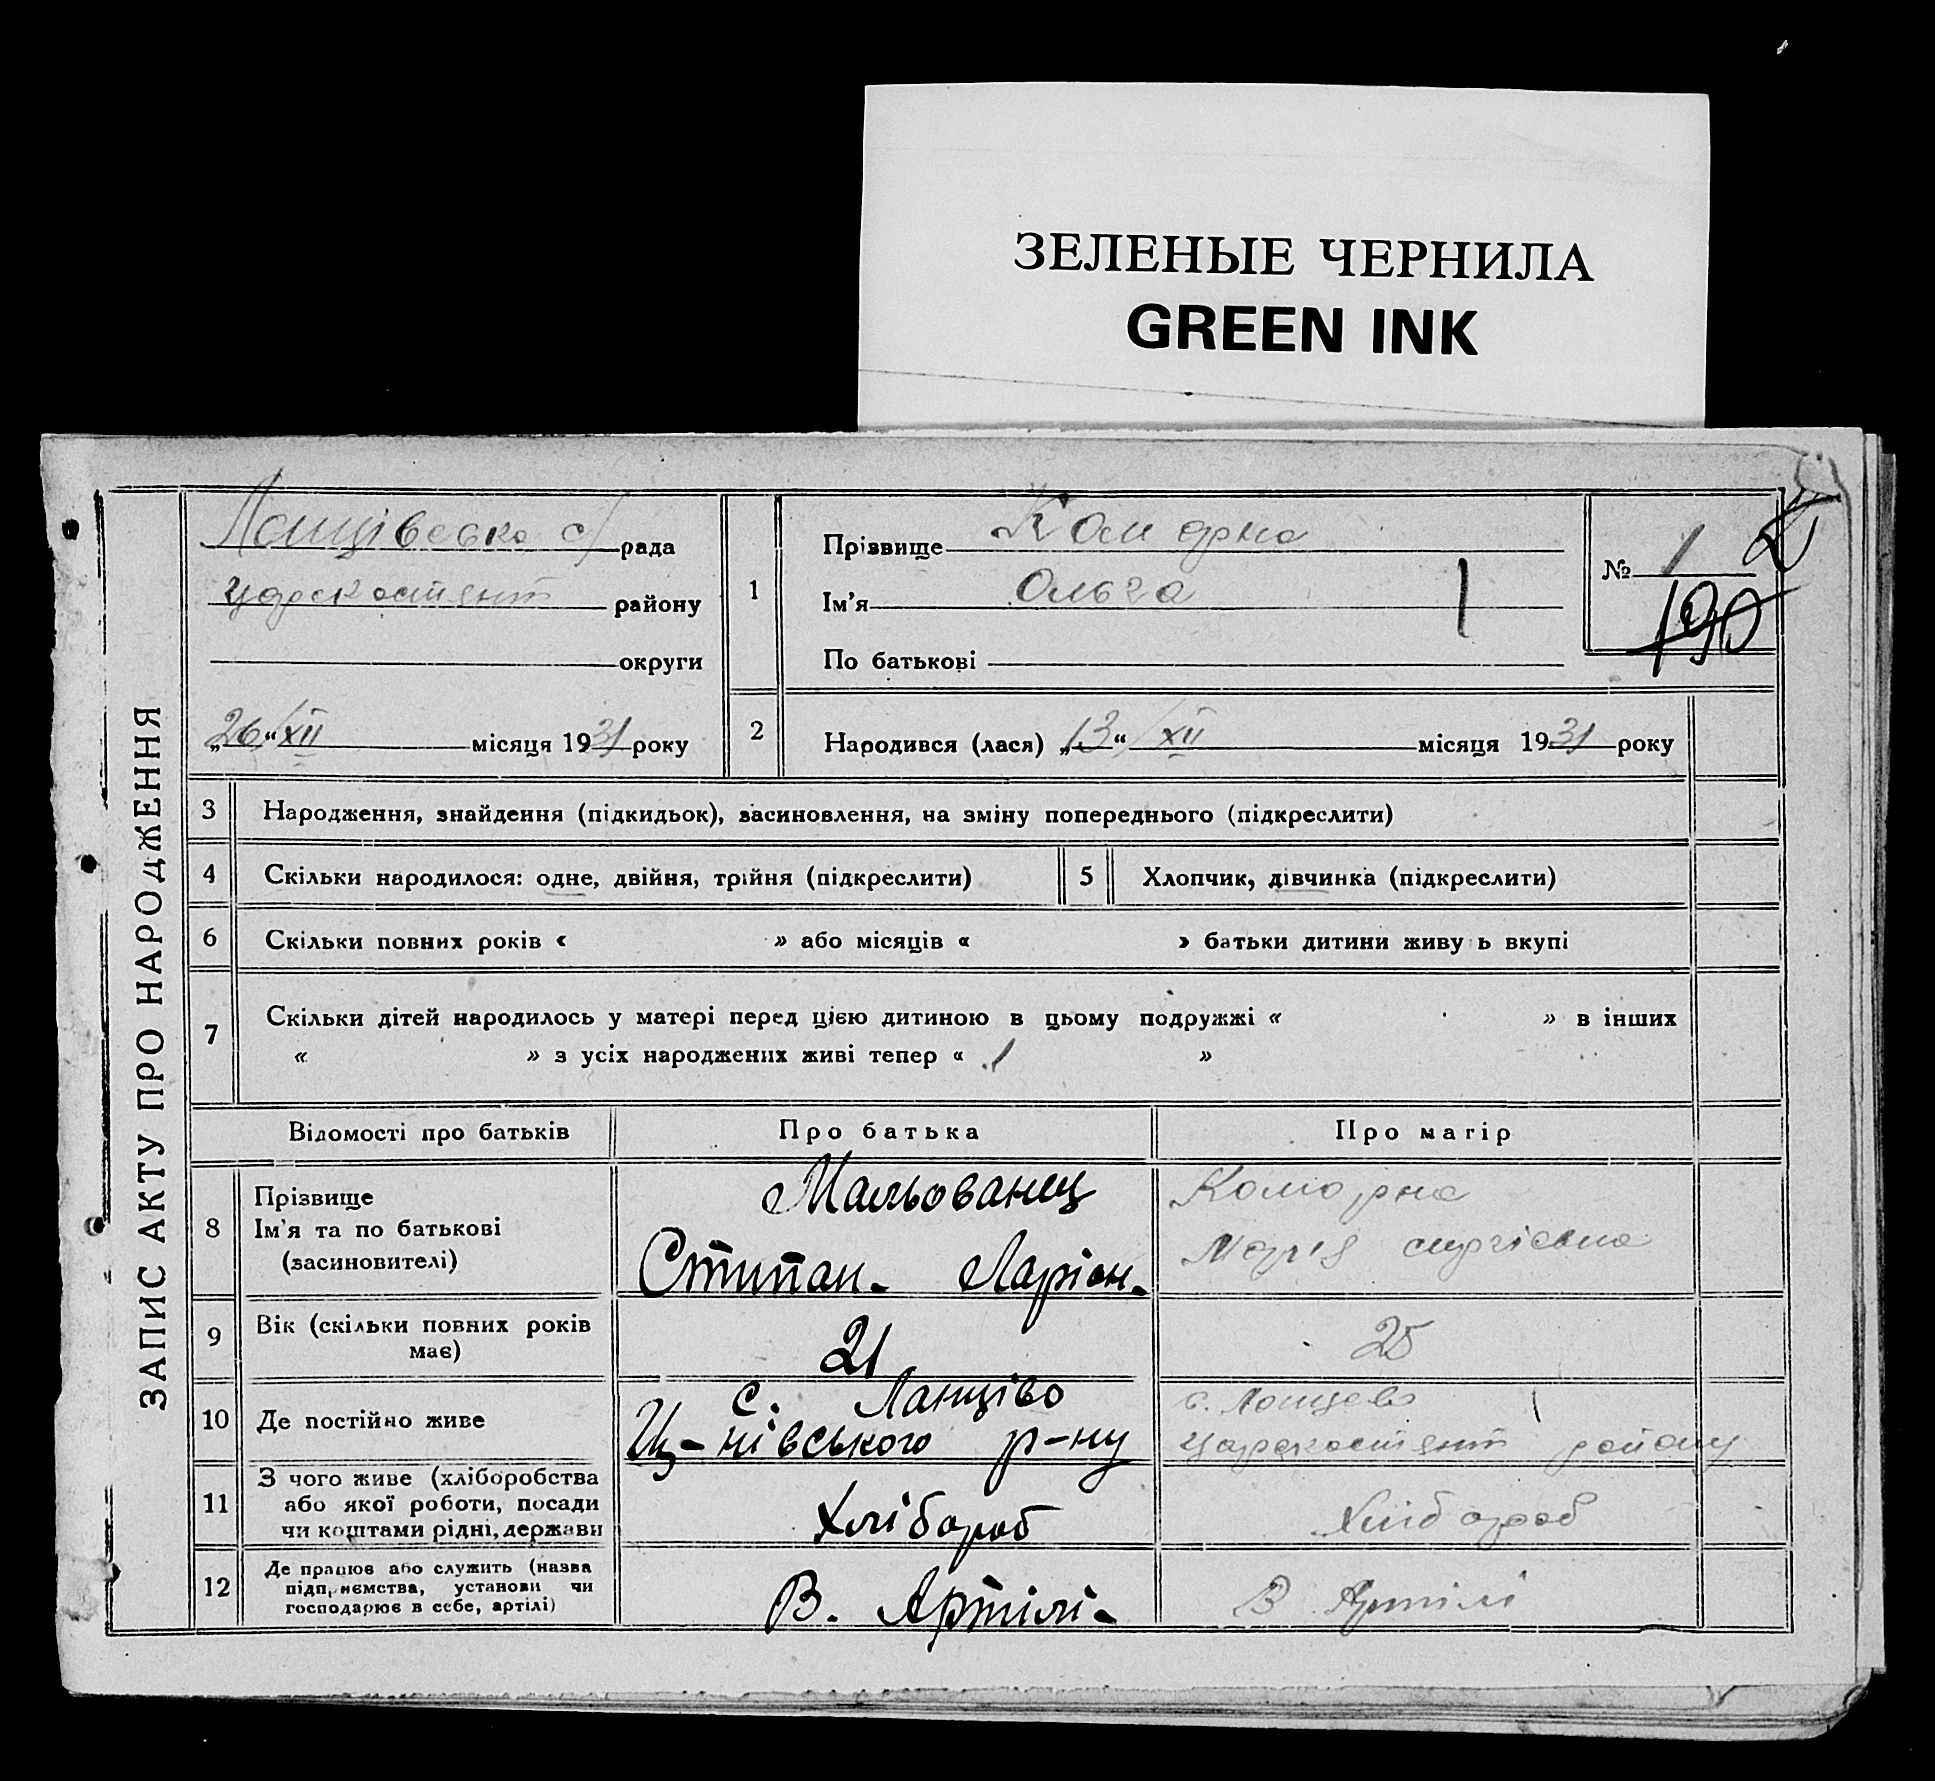 ЗЕЛЕНЫЕ ЧЕРНИЛА
GREEN INK
ЗАПИС АКТУ ПРО НАРОДЖЕННЯ
Ланцівська с/рада
району
округи
„26“ XII місяця 1931 року
1
Прізвище Коморна
Ім'я Ольга
По батькові
№ 1
190
2
Народився (лася) „13“ XII місяця 1931 року
3 Народження, знайдення (підкидьок), васиновлення, на зміну попереднього (підкреслити)
4 Скільки народилося: одне, двійня, трійня (підкреслити)
5 Хлопчик, дівчинка (підкреслити)
6 Скільки повних років « » або місяців « » батьки дитини живу ь вкупі
7 Скільки дітей народилось у матері перед цією дитиною в цьому подружжі « » в інших
« » з усіх народжених живі тепер « 1 »
Відомості про батьків Про батька Про матір
8 Прізвище
Ім'я та по батькові
(засиновителі)
Мальованец
Стипан. Ларіон.
Коморна
Марія
9 Вік (скільки повних років
має)
21
25
10 Де постійно живе
с. Ланціво
Ц-нівського р-ну
с. Ланцево
району
11 З чого живе (хліборобства
або якої роботи, посади
чи коштами рідні, держави
Хлібороб
Хлібороб
12 Де працює або служить (назва
підприємства, установи чи
господарює в себе, артілі)
В. Артілі.
В Артілі